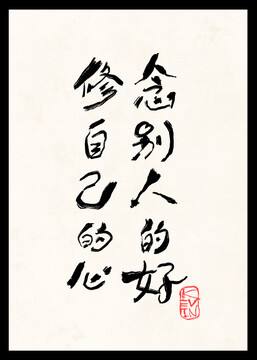 念别人的好
修自己的心
KEVIN